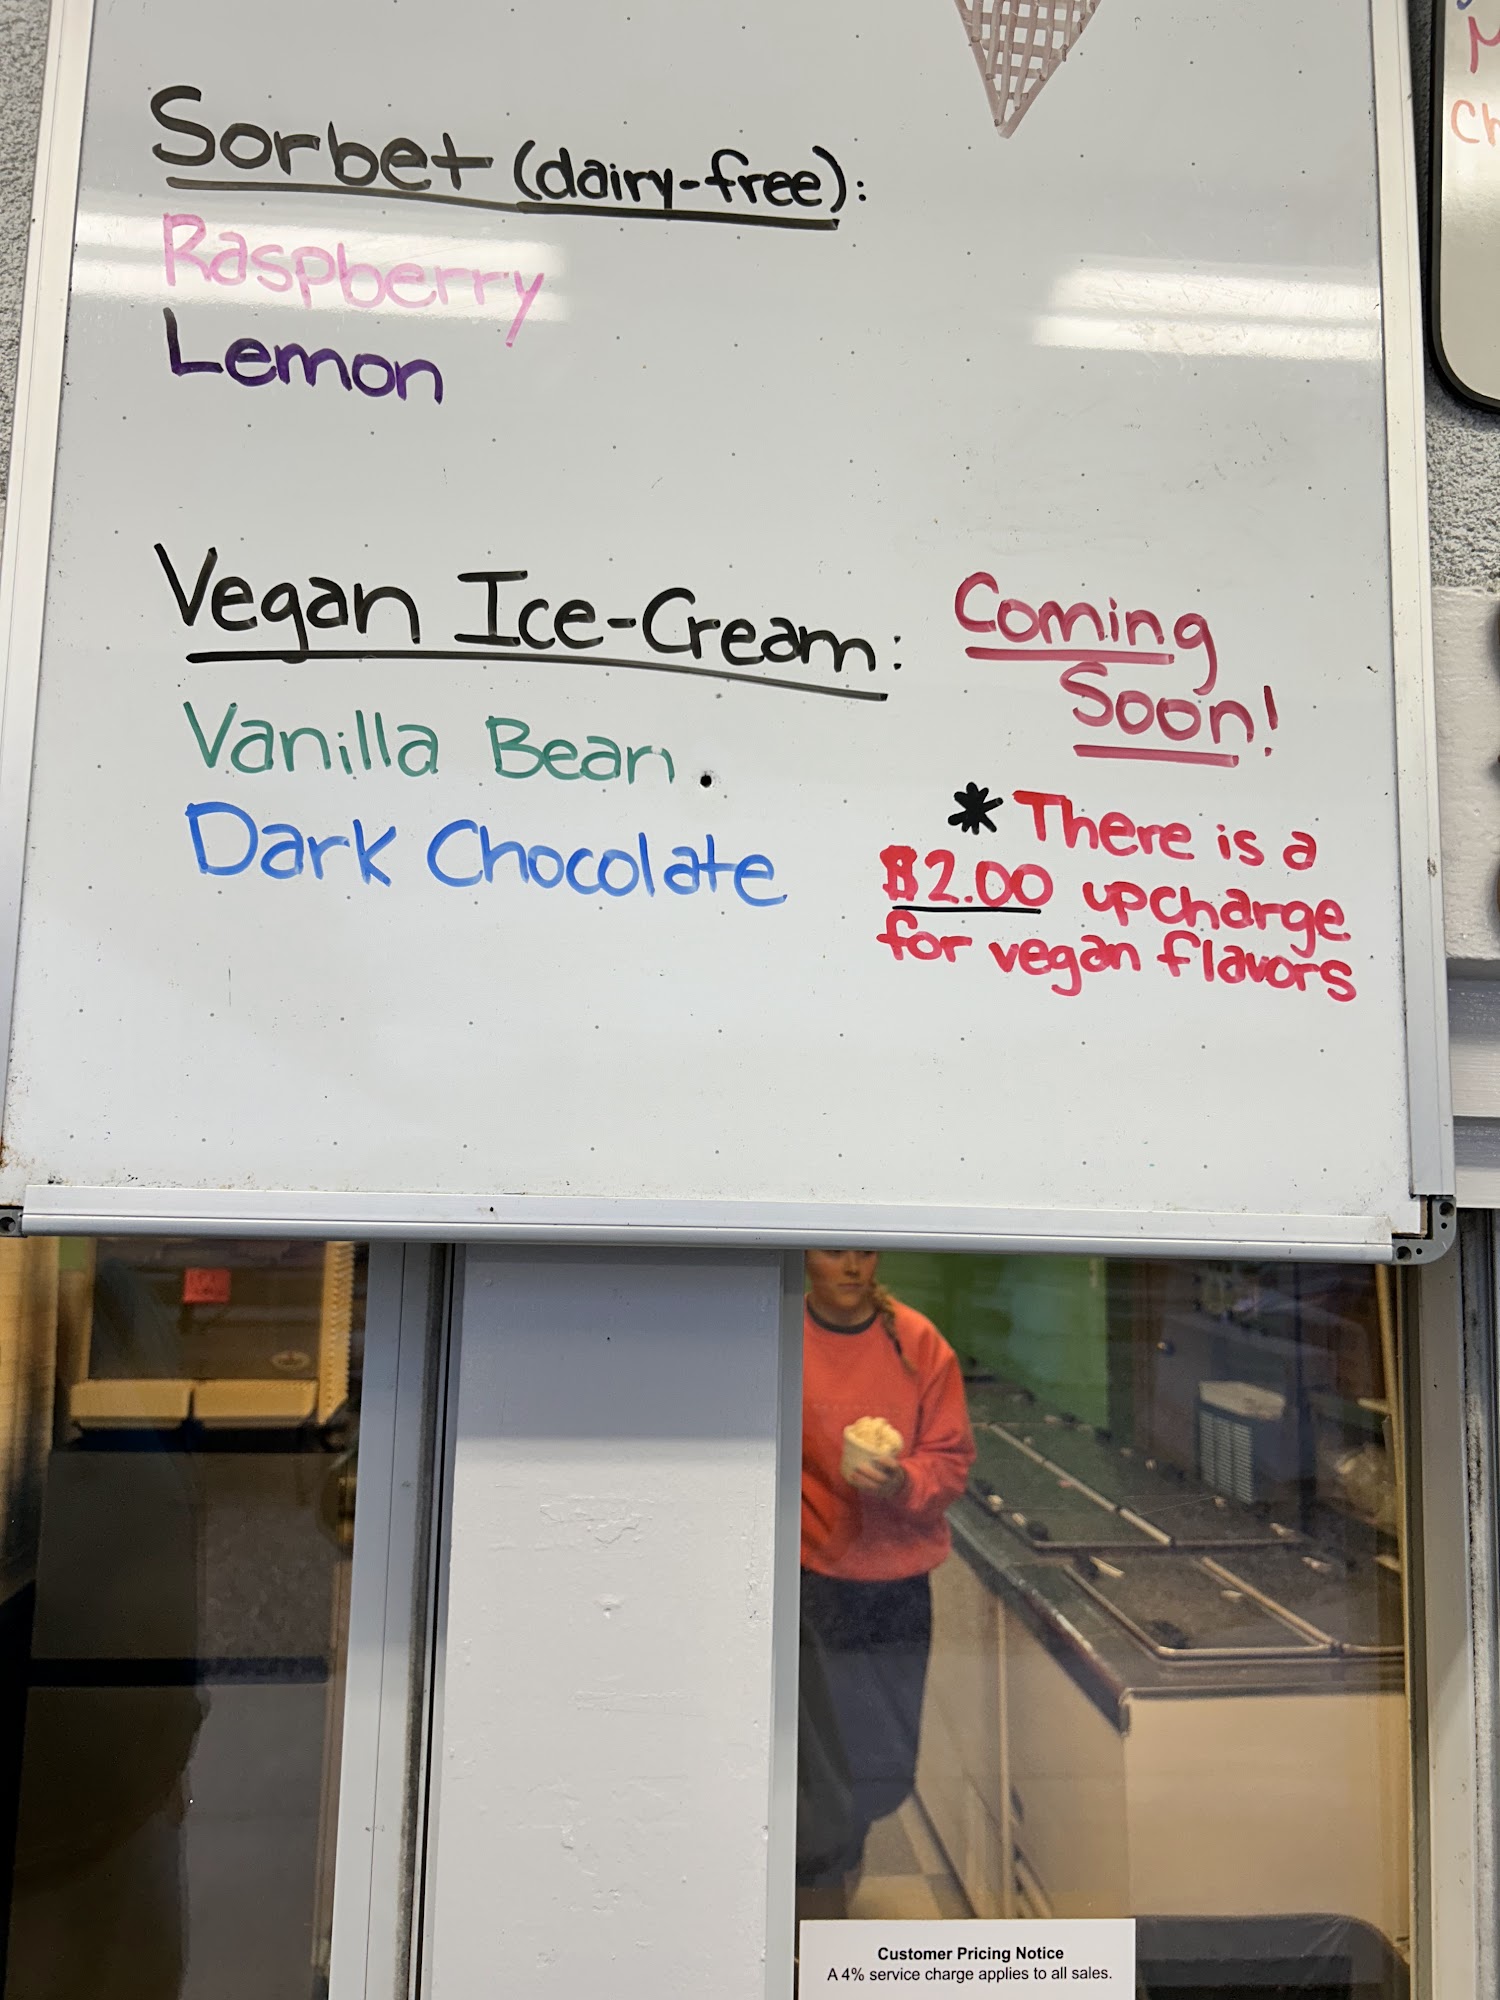 Sorbet (dairy-free):
Raspberry
Lemon
Vegan Ice-Cream:
Vanilla Bean
Dark Chocolate
Coming
Soon!
* There is a
$2.00 upcharge
for vegan flavors
Customer Pricing Notice
A 4% service charge applies to all sales.